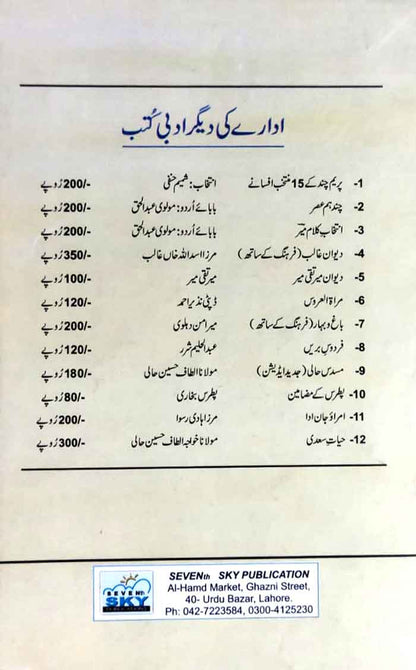 ادارے کی دیگر ادبی کُتب
1- پریم چند کے 15 منتخب افسانے انتخاب: شمیم حنفی 200/- رُوپے
2- چند ہم عصر بابائے اُردو: مولوی عبدالحق 200/- رُوپے
3- انتخابِ کلام میرؔ بابائے اُردو: مولوی عبدالحق 200/- رُوپے
4- دیوانِ غالب (فرہنگ کے ساتھ) مرزا اسد اللہ خاں غالب 350/- رُوپے
5- دیوان میر تقی میر میر تقی میر 100/- رُوپے
6- مراۃ العروس ڈپٹی نذیر احمد 120/- رُوپے
7- باغ و بہار (فرہنگ کے ساتھ) میر امن دہلوی 200/- رُوپے
8- فردوسِ بریں عبدالحلیم شرر 120/- رُوپے
9- مسدس حالی (جدید ایڈیشن) مولانا الطاف حسین حالی 180/- رُوپے
10- پطرس کے مضامین پطرس بخاری 80/- رُوپے
11- امراؤ جان ادا مرزا ہادی رسوا 200/- رُوپے
12- حیاتِ سعدی مولانا خواجہ الطاف حسین حالی 300/- رُوپے
SEVENth SKY
SEVENth SKY PUBLICATION
Al-Hamd Market, Ghazni Street,
40- Urdu Bazar, Lahore.
Ph: 042-7223584, 0300-4125230